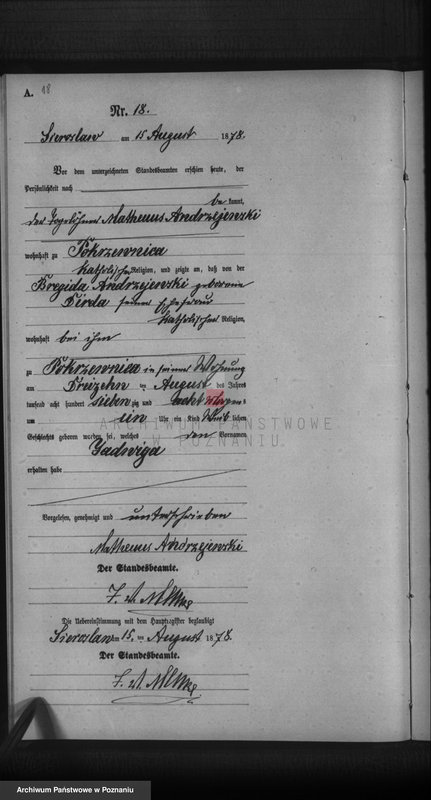 A. 18
Nr. 18.
Sieroslaw am 15 August 1878.
Vor dem unterzeichneten Standesbeamten erschien heute, der
Persönlichkeit nach
be kannt,
der Tagelöhner Matheus Andrzejewski
wohnhaft zu Pokrzewnica
katholischer Religion, und zeigte an, daß von der
Bregida Andrzejewski geborene
Birda seiner Ehefrau
katholischen Religion,
wohnhaft bei ihm
zu Pokrzewnica in seiner Wohnung
am Dreizehn ten August des Jahres
tausend acht hundert sieben zig und acht
um ein Uhr ein Kind weib lichen
Geschlechts geboren worden sei, welches den Vornamen
Jadwiga
erhalten habe
Vorgelesen, genehmigt und unterschrieben
Matheus Andrzejewski
Der Standesbeamte.
Die Uebereinstimmung mit dem Hauptregister beglaubigt
Sieroslaw am 15. ten August 1878.
Der Standesbeamte.
ARCHIWUM PAŃSTWOWE
W POZNANIU
Archiwum Państwowe w Poznaniu